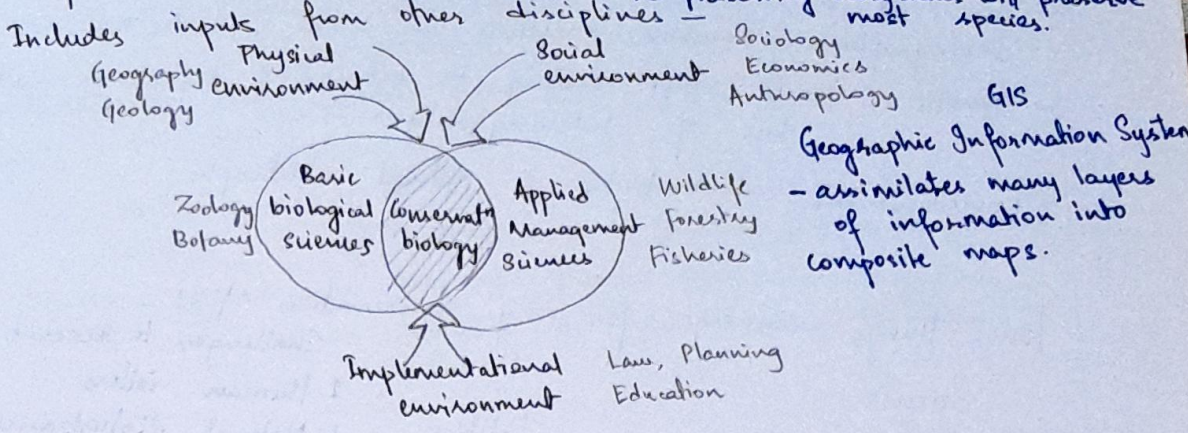 most species.
Includes inputs from other disciplines —
Physical environment
Geography
Geology
Social environment
Sociology
Economics
Anthropology
GIS
Geographic Information System
- assimilates many layers
of information into
composite maps.
Zoology
Botany
Basic
biological
sciences
Conservatn
biology
Applied
Management
Sciences
Wildlife
Forestry
Fisheries
Implementational
environment
Law, Planning
Education